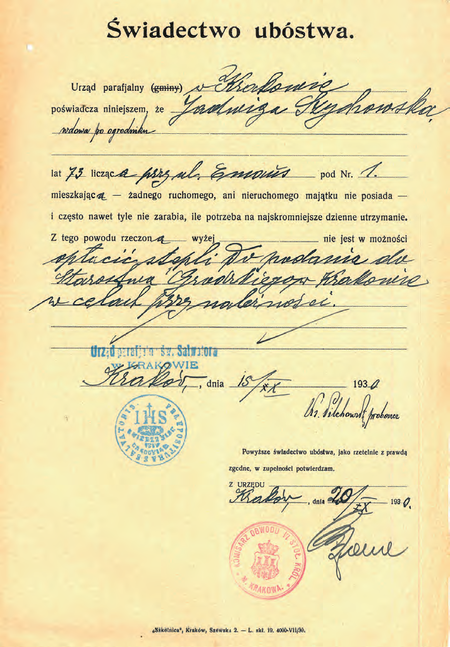 Świadectwo ubóstwa.
Urząd parafjalny (gminy) w Krakowie
poświadcza niniejszem, że Jadwiga Rychowska,
wdowa po ogrodniku
lat 73 licząca przy ul. Emaus pod Nr. 1.
mieszkająca — żadnego ruchomego, ani nieruchomego majątku nie posiada —
i często nawet tyle nie zarabia, ile potrzeba na najskromniejsze dzienne utrzymanie.
Z tego powodu rzeczona wyżej nie jest w możności
opłacić stępli do podania do
Starostwa Grodzkiego w Krakowie
w celach przynależności.
Urząd parafjalny św. Salwatora
W KRAKOWIE
Kraków, dnia 15/IX 1930
Ks. proboszcz
IHS
Powyższe świadectwo ubóstwa, jako rzetelnie z prawdą
zgodne, w zupełności potwierdzam.
Z URZĘDU
Kraków, dnia 20/IX 1930.
KOMISARZ OBWODU VI STOŁ. KRÓL.
M. KRAKOWA.
„Szkolnica", Kraków, Szewska 2. — L. skł. 19. 4000-VII/30.